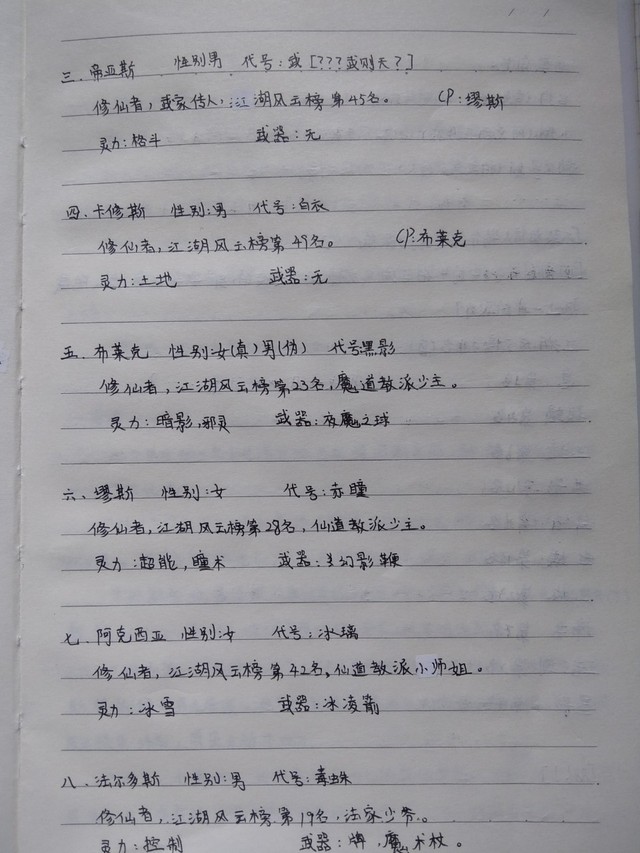 三、帝亚斯 性别男 代号:武[???武则天?]
修仙者,武家传人,江湖风云榜第45名。 CP:缪斯
灵力:格斗 武器:无
四、卡修斯 性别:男 代号:白衣
修仙者,江湖风云榜第49名。 CP:布莱克
灵力:土地 武器:无
五、布莱克 性别:女(真)男(伪) 代号黑影
修仙者,江湖风云榜第23名,魔道教派少主。
灵力:暗影,邪灵 武器:夜魔之球
六、缪斯 性别:女 代号:赤瞳
修仙者,江湖风云榜第28名,仙道教派少主。
灵力:超能,瞳术 武器:幻影鞭
七、阿克西亚 性别:女 代号:冰璃
修仙者,江湖风云榜第42名,仙道教派小师姐。
灵力:冰雪 武器:冰凌箭
八、法尔多斯 性别:男 代号:毒蛛
修仙者,江湖风云榜第19名,法家少爷。
灵力:控制 武器:牌,魔术杖。